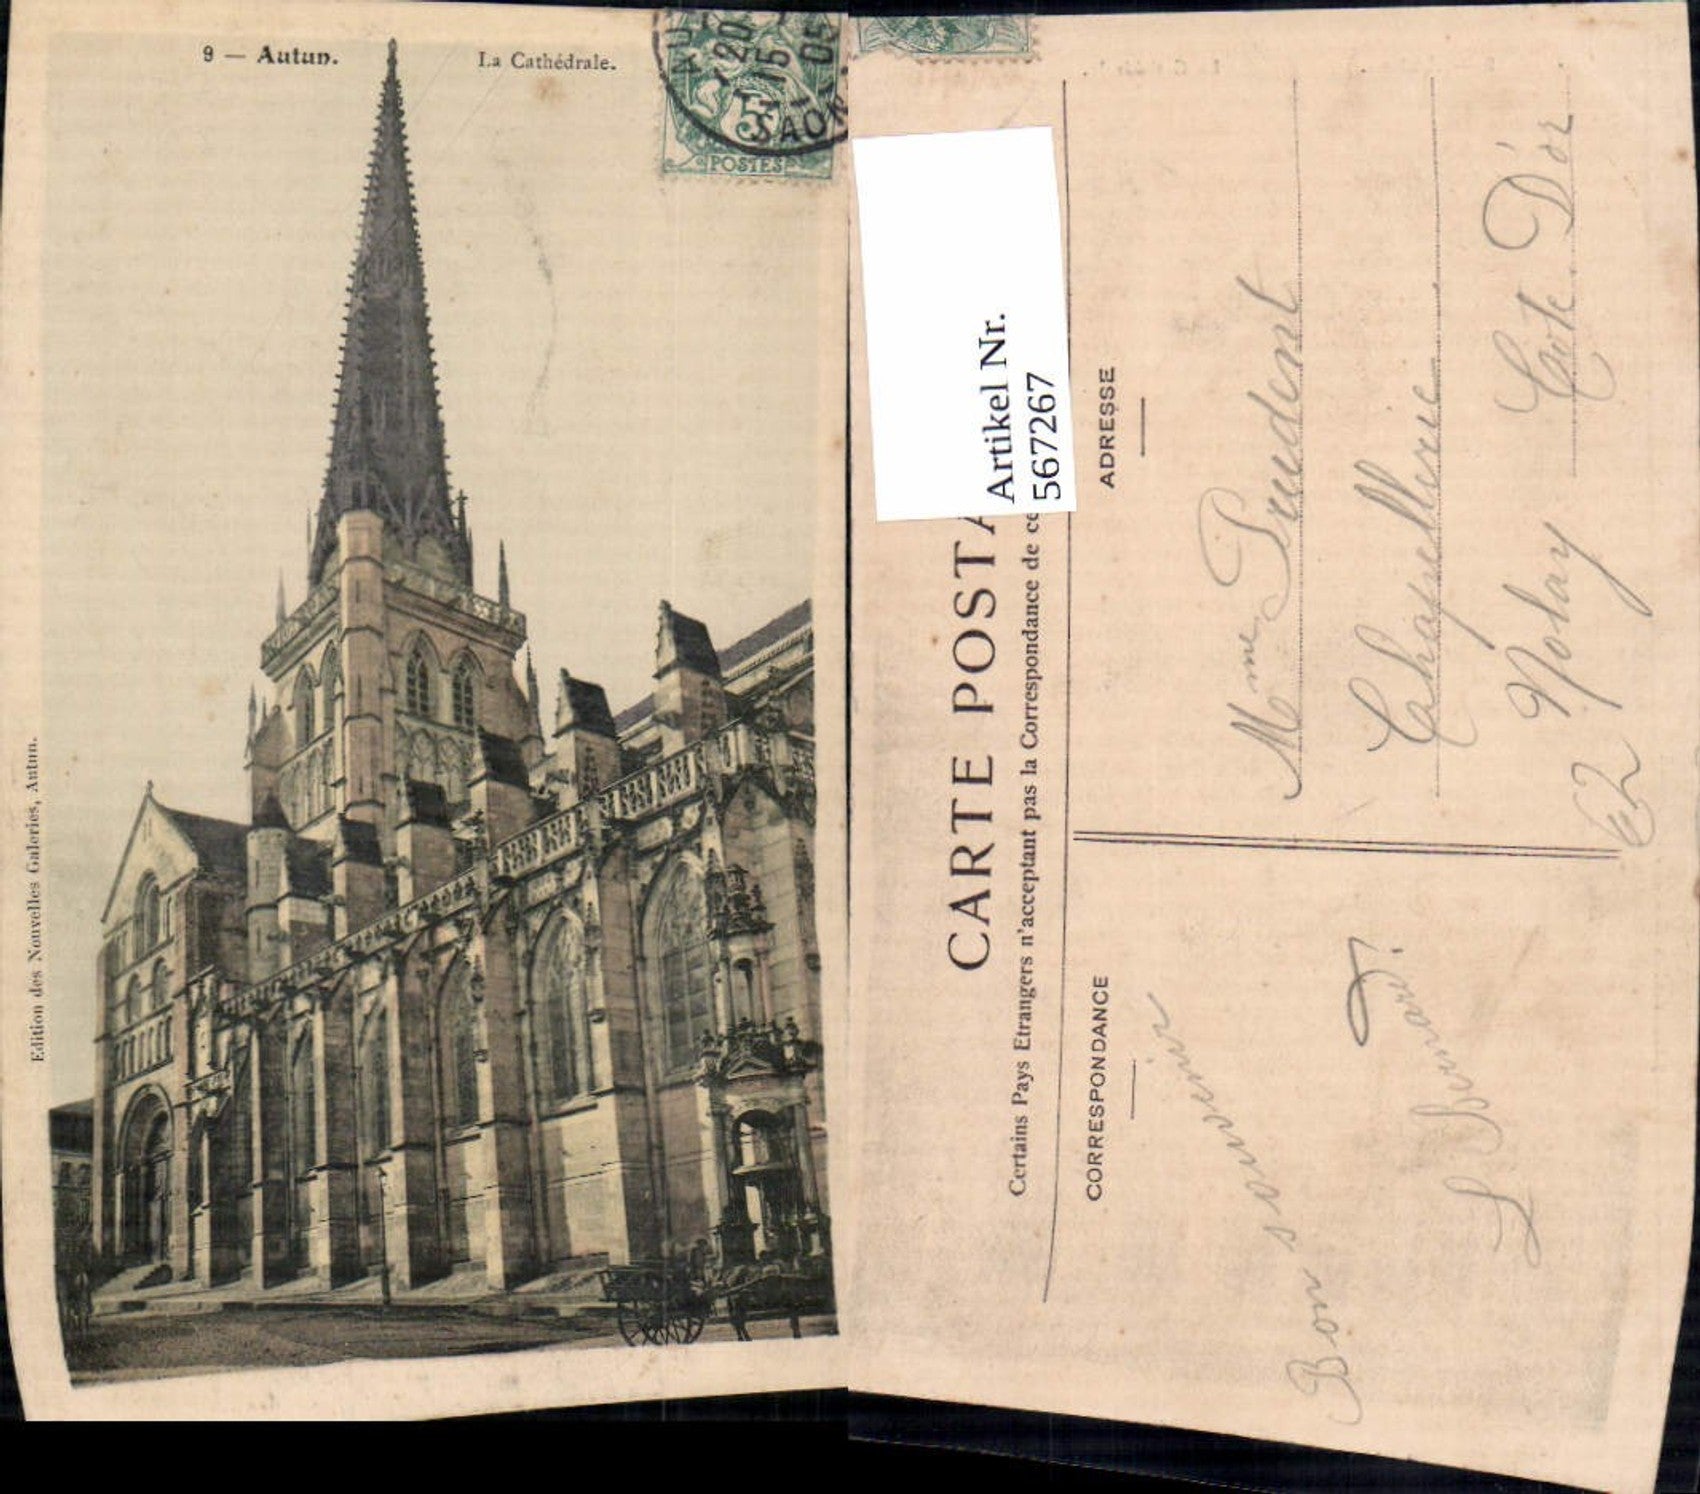 9 — Autun.
La Cathédrale.
AU
20
15 -
05
SAÔN
5
POSTES
Edition des Nouvelles Galeries, Autun.
Artikel Nr.
567267
CARTE POSTA
Certains Pays Etrangers n'acceptant pas la Correspondance de ce
CORRESPONDANCE
ADRESSE
Mme Prudent
Chapellerie
62 Nolay
Cote D'or
Bon souvenir
L Bernard!